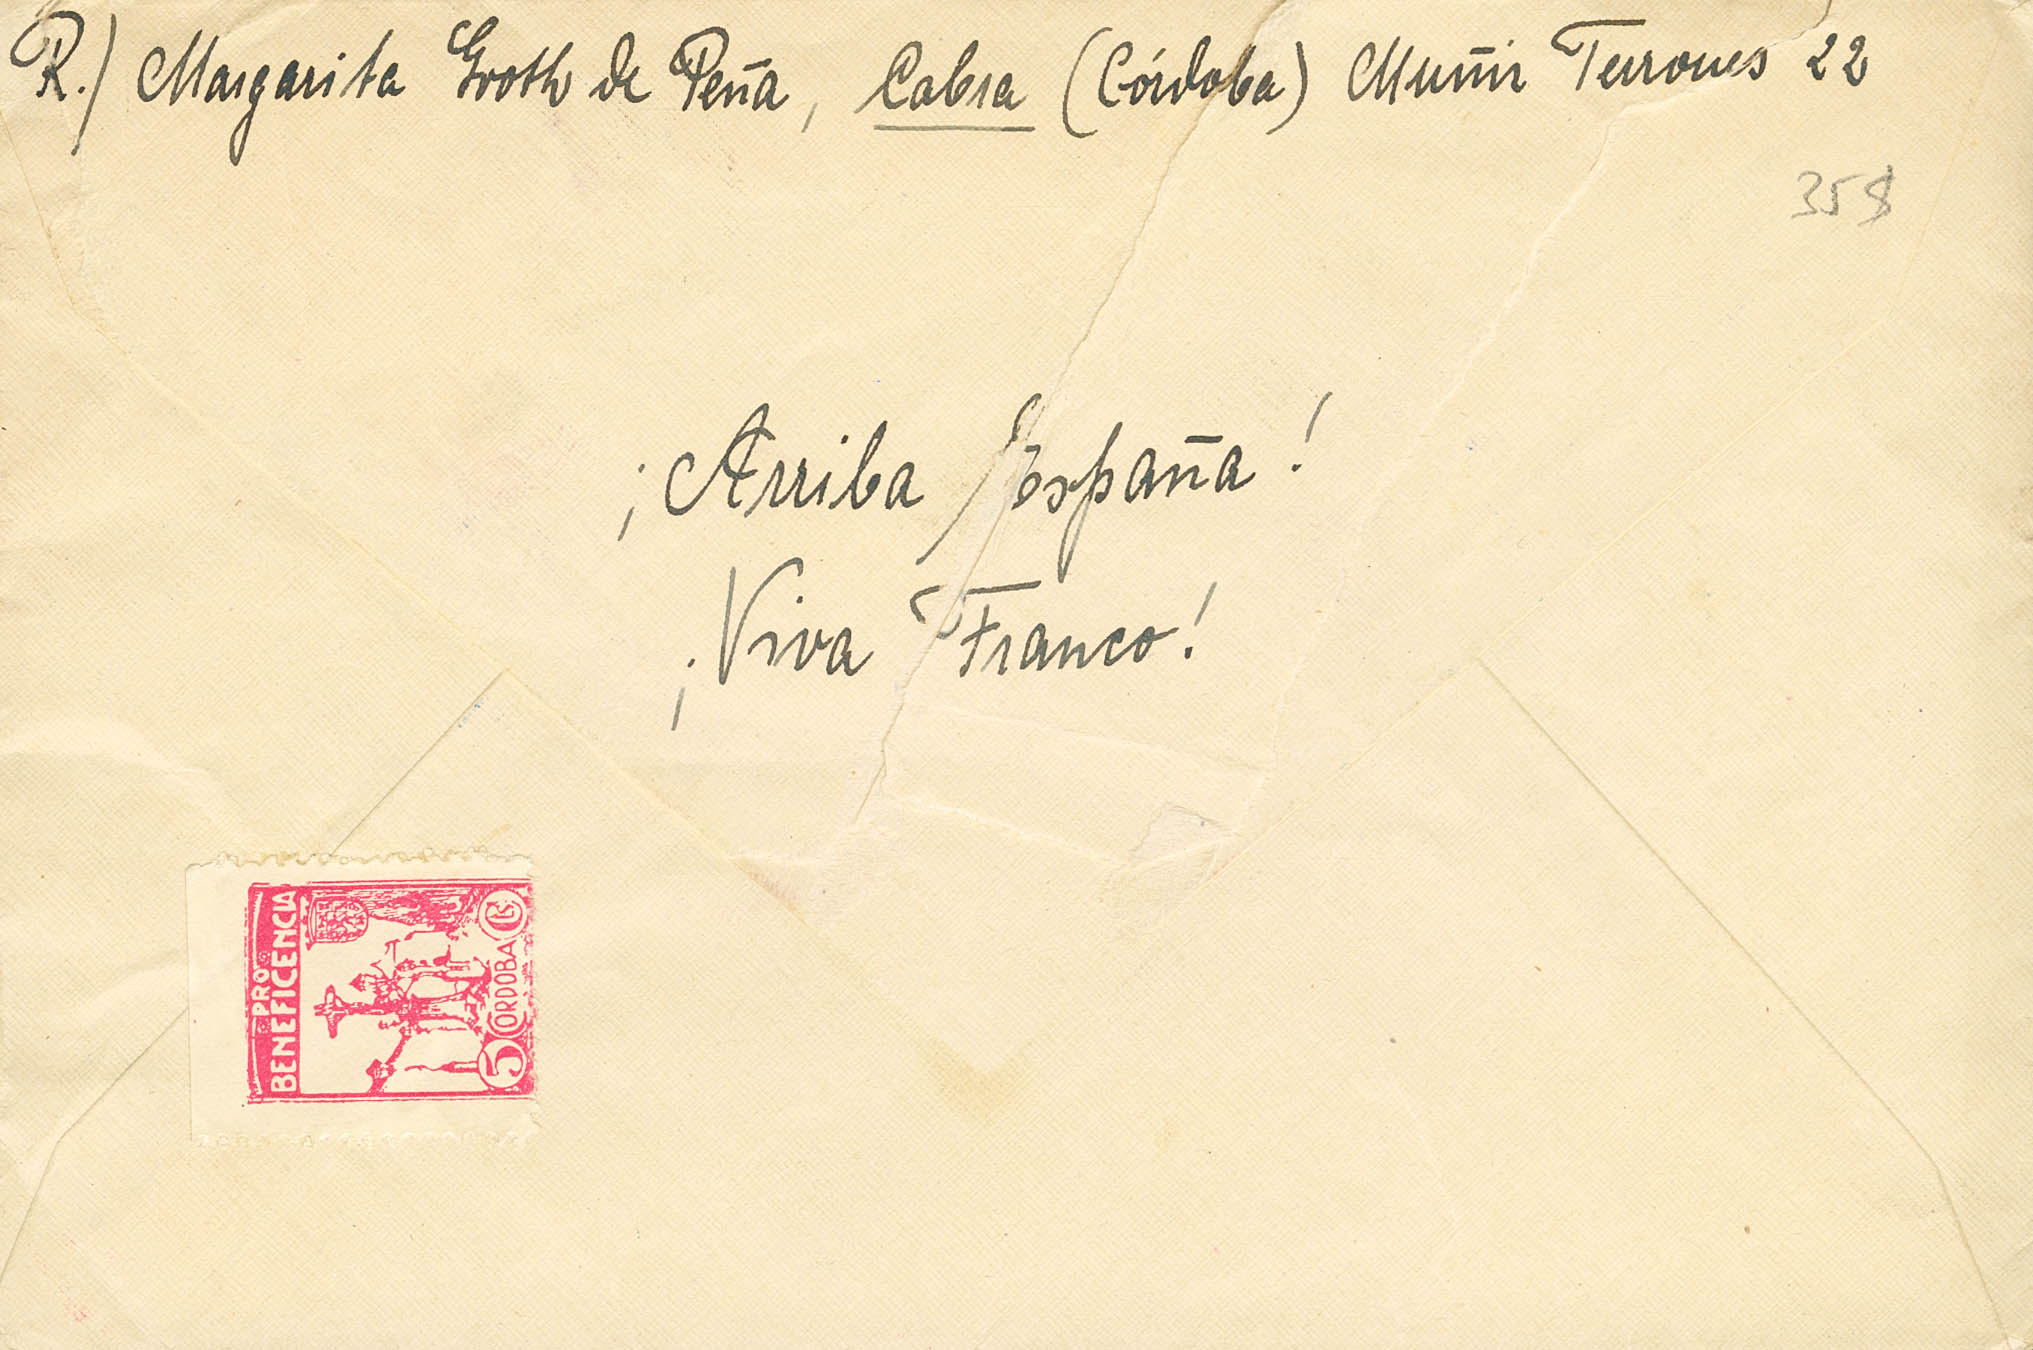 R./ Margarita Groth de Peña, Cabra (Córdoba) Muñir Terrones 22
358
¡Arriba España!
¡Viva Franco!
PRO
BENEFICENCIA
5 CORDOBA Cs